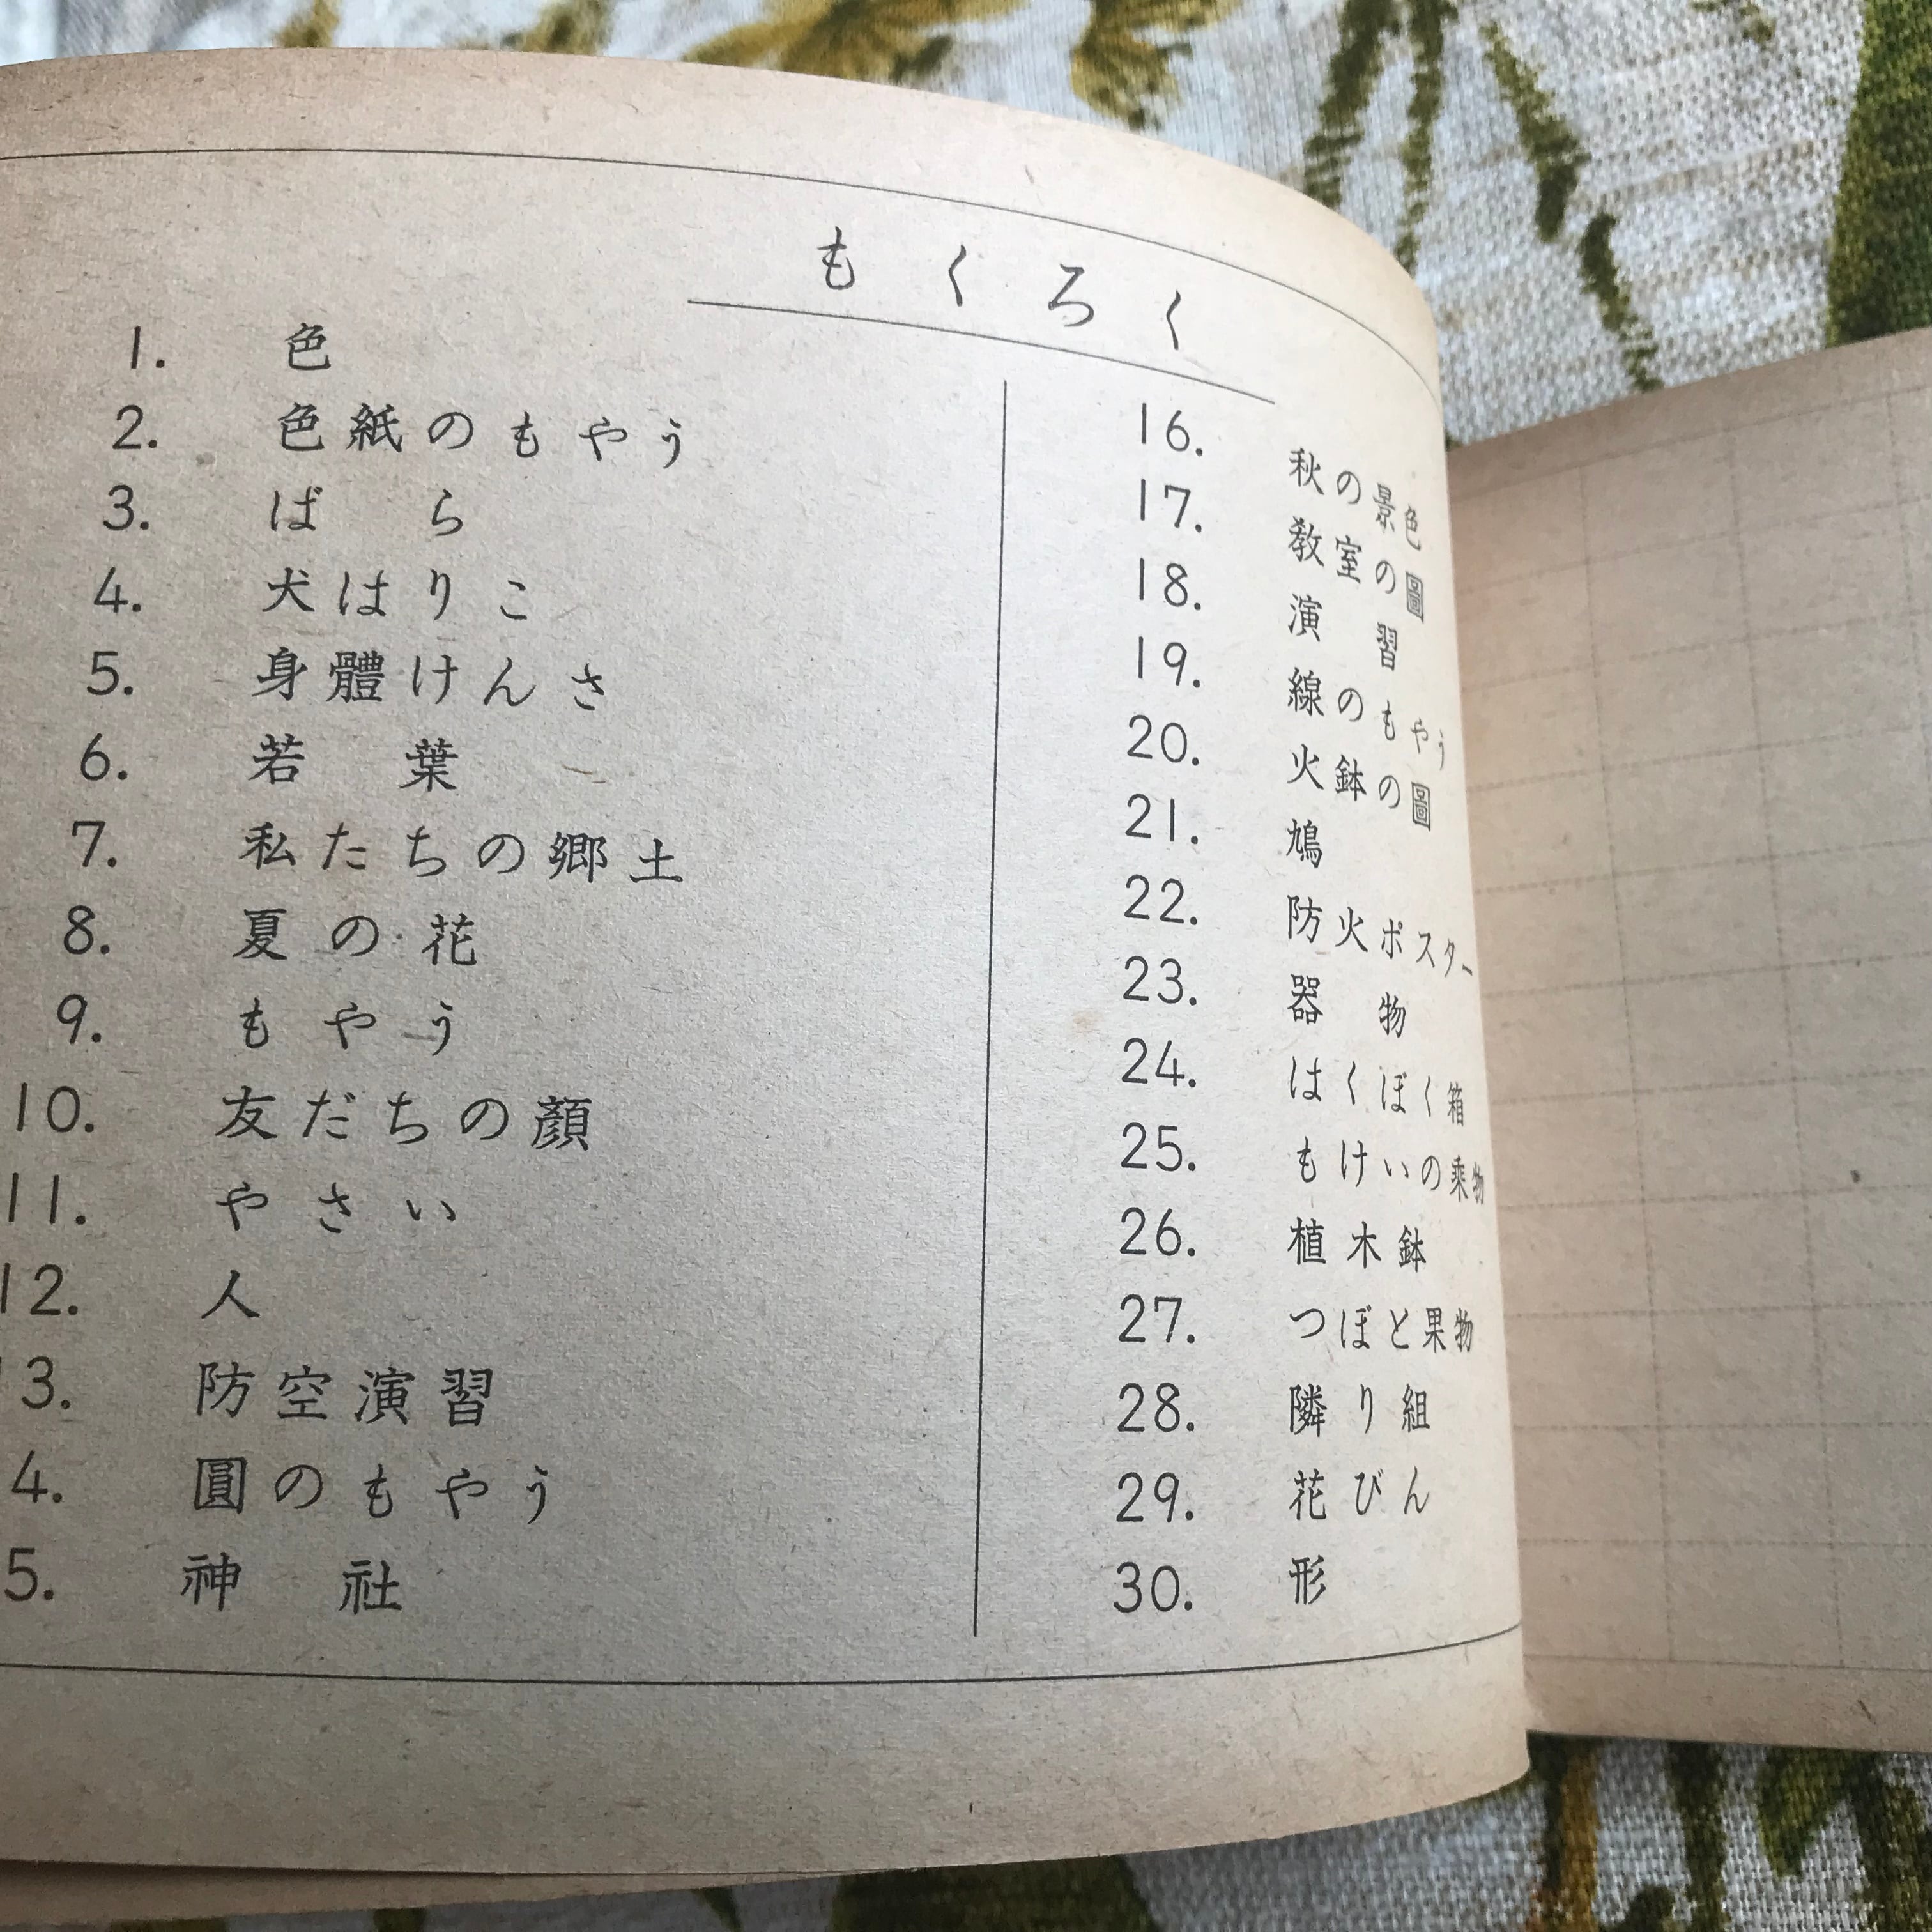 もくろく
1. 色
2. 色紙のもやう
3. ばら
4. 犬はりこ
5. 身體けんさ
6. 若葉
7. 私たちの郷土
8. 夏の花
9. もやう
10. 友だちの顏
11. やさい
12. 人
13. 防空演習
4. 圓のもやう
5. 神社
16. 秋の景色
17. 教室の圖
18. 演習
19. 線のもやう
20. 火鉢の圖
21. 鳩
22. 防火ポスター
23. 器物
24. はくぼく箱
25. もけいの乘物
26. 植木鉢
27. つぼと果物
28. 隣り組
29. 花びん
30. 形